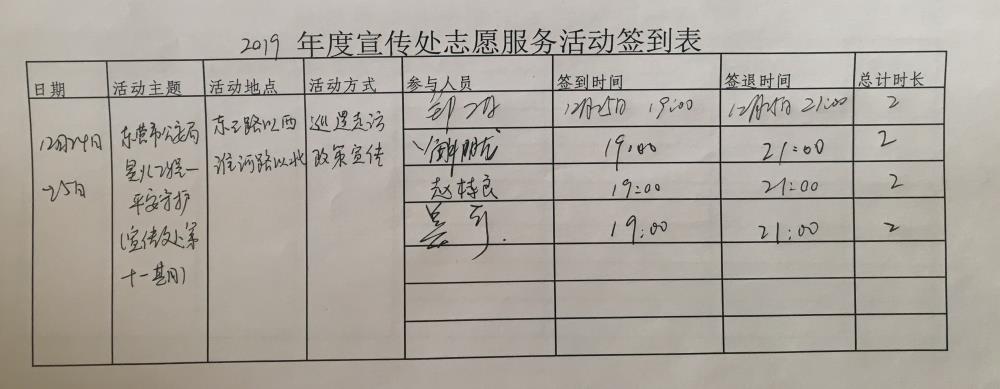 2019 年度宣传处志愿服务活动签到表
日期 活动主题 活动地点 活动方式 参与人员 签到时间 签退时间 总计时长
12月24日
25日
东营市公安局
平安守护
(宣传处第
十一期)
东三路以西
淮河路以北
巡逻走访
政策宣传
12月25日 19:00 12月25日 21:00 2
19:00 21:00 2
赵栋良 19:00 21:00 2
19:00 21:00 2